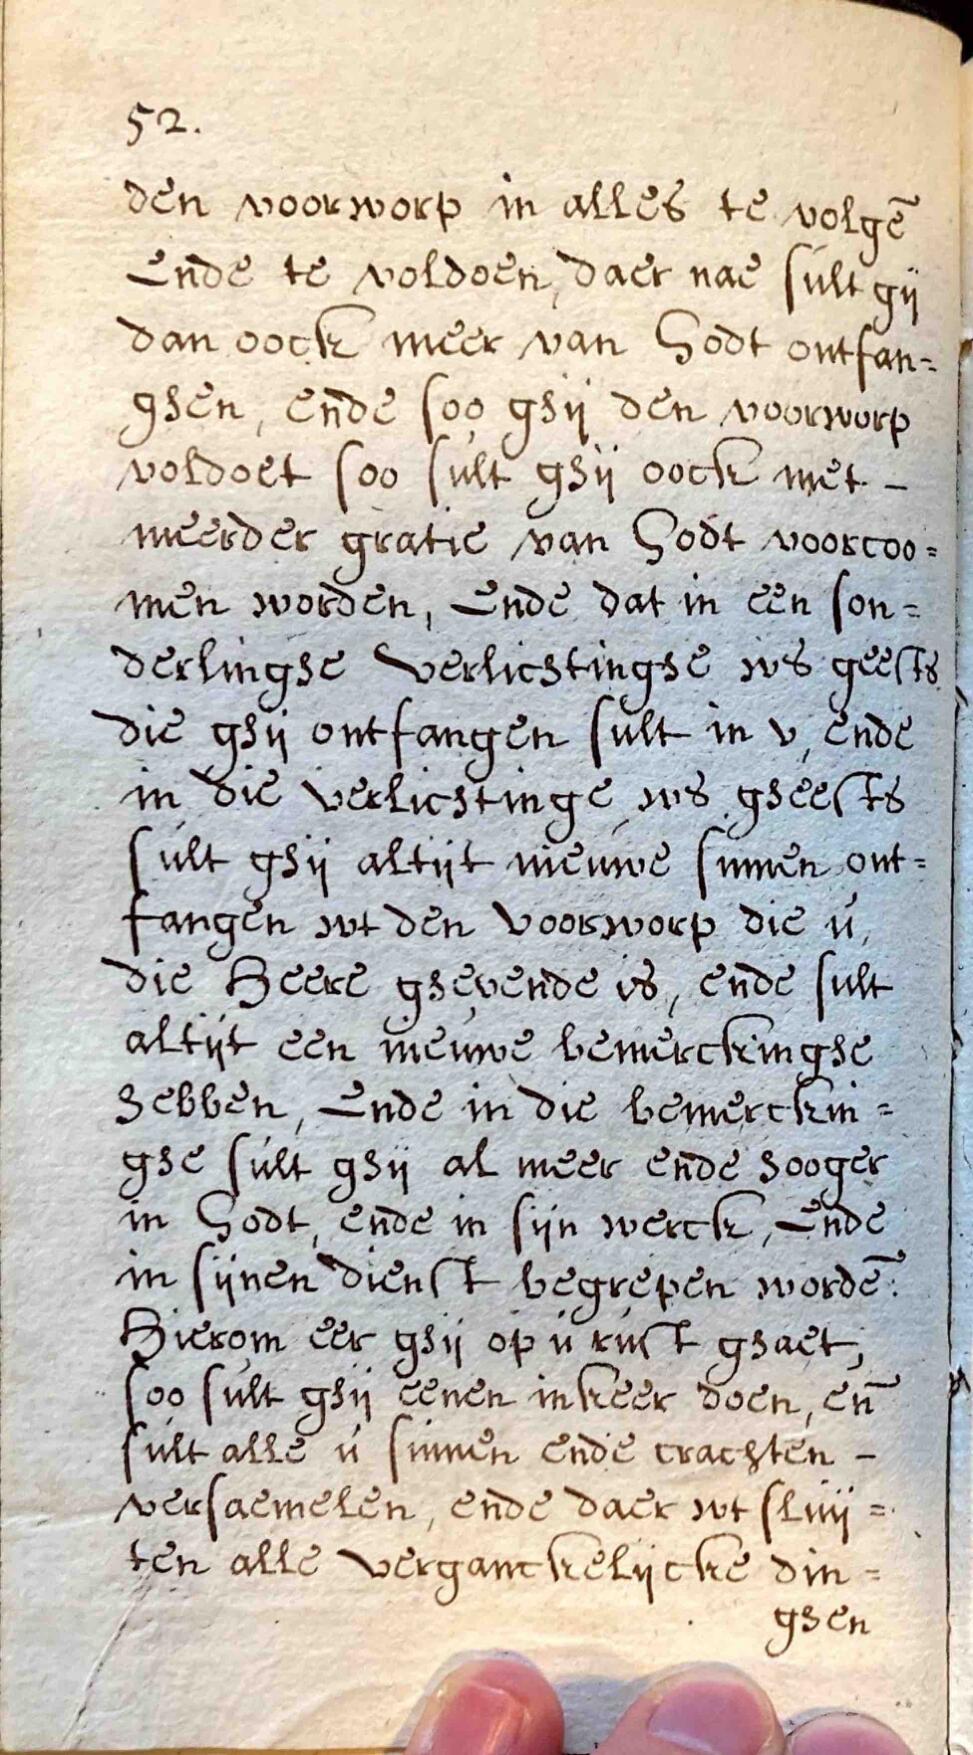 52.
den voorworp in alles te volgē
Ende te voldoen, daer nae sult gij
dan oock meer van Godt ontfan=
ghen, ende soo ghij den voorworp
voldoet soo sult ghij oock met –
meerder gratie van Godt voorcoo=
men worden, Ende dat in een son=
derlinghe verlichtinghe ws geests
die ghij ontfangen sult in v, ende
in die verlichtinge ws gheests
sult ghij altijt nieuwe sinnen ont=
fangen wt den voorworp die ú,
die Heere ghevende is, ende sult
altijt een nieuwe bemerckinghe
hebben, Ende in die bemerckin=
ghe sult ghij al meer ende hooger
in Godt, ende in sijn werck, Ende
in sijnen dienst begrepen wordē:
Hierom eer ghij op ú rust ghaet,
soo sult ghij eenen inkeer doen, en̄
sult alle ú sinnen ende crachten –
versaemelen, ende daer wt sluij=
ten alle verganckelijcke din=
ghen